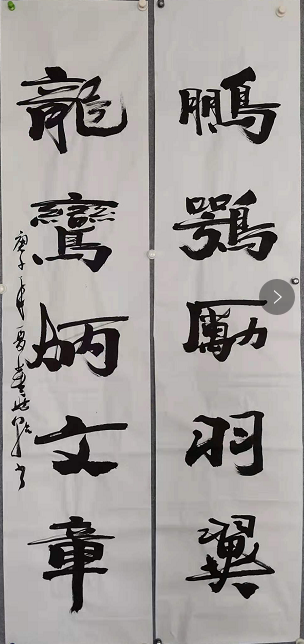 鵬鶚勵羽翼
龍鸞炳文章
庚子年夏